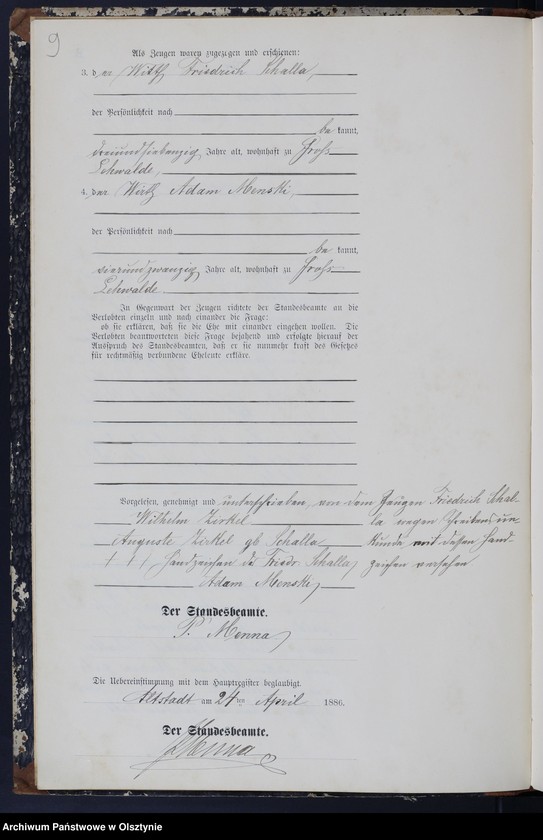 9
Als Zeugen waren zugezogen und erschienen:
3. der Wirth Friedrich Schalla,
der Persönlichkeit nach
be kannt,
dreiundsiebenzig Jahre alt, wohnhaft zu Groß
Lehwalde,
4. der Wirth Adam Monski,
der Persönlichkeit nach
be kannt,
vierundzwanzig Jahre alt, wohnhaft zu Groß
Lehwalde
In Gegenwart der Zeugen richtete der Standesbeamte an die
Verlobten einzeln und nach einander die Frage:
ob sie erklären, daß sie die Ehe mit einander eingehen wollen. Die
Verlobten beantworteten diese Frage bejahend und erfolgte hierauf der
Ausspruch des Standesbeamten, daß er sie nunmehr kraft des Gesetzes
für rechtmäßig verbundene Eheleute erkläre.
Vorgelesen, genehmigt und unterschrieben, von dem Zeugen Friedrich Schal-
Wilhelm Zirkel la wegen Schreibensun-
Auguste Zirkel gb Schalla kunde mit dessen Hand-
+++ Handzeichen de Friedr Schalla, zeichen versehen
Adam Monski
Der Standesbeamte.
P. Menna
Die Uebereinstimmung mit dem Hauptregister beglaubigt.
Altstadt am 24 ten April 1886.
Der Standesbeamte.
P. Menna
Archiwum Państwowe w Olsztynie